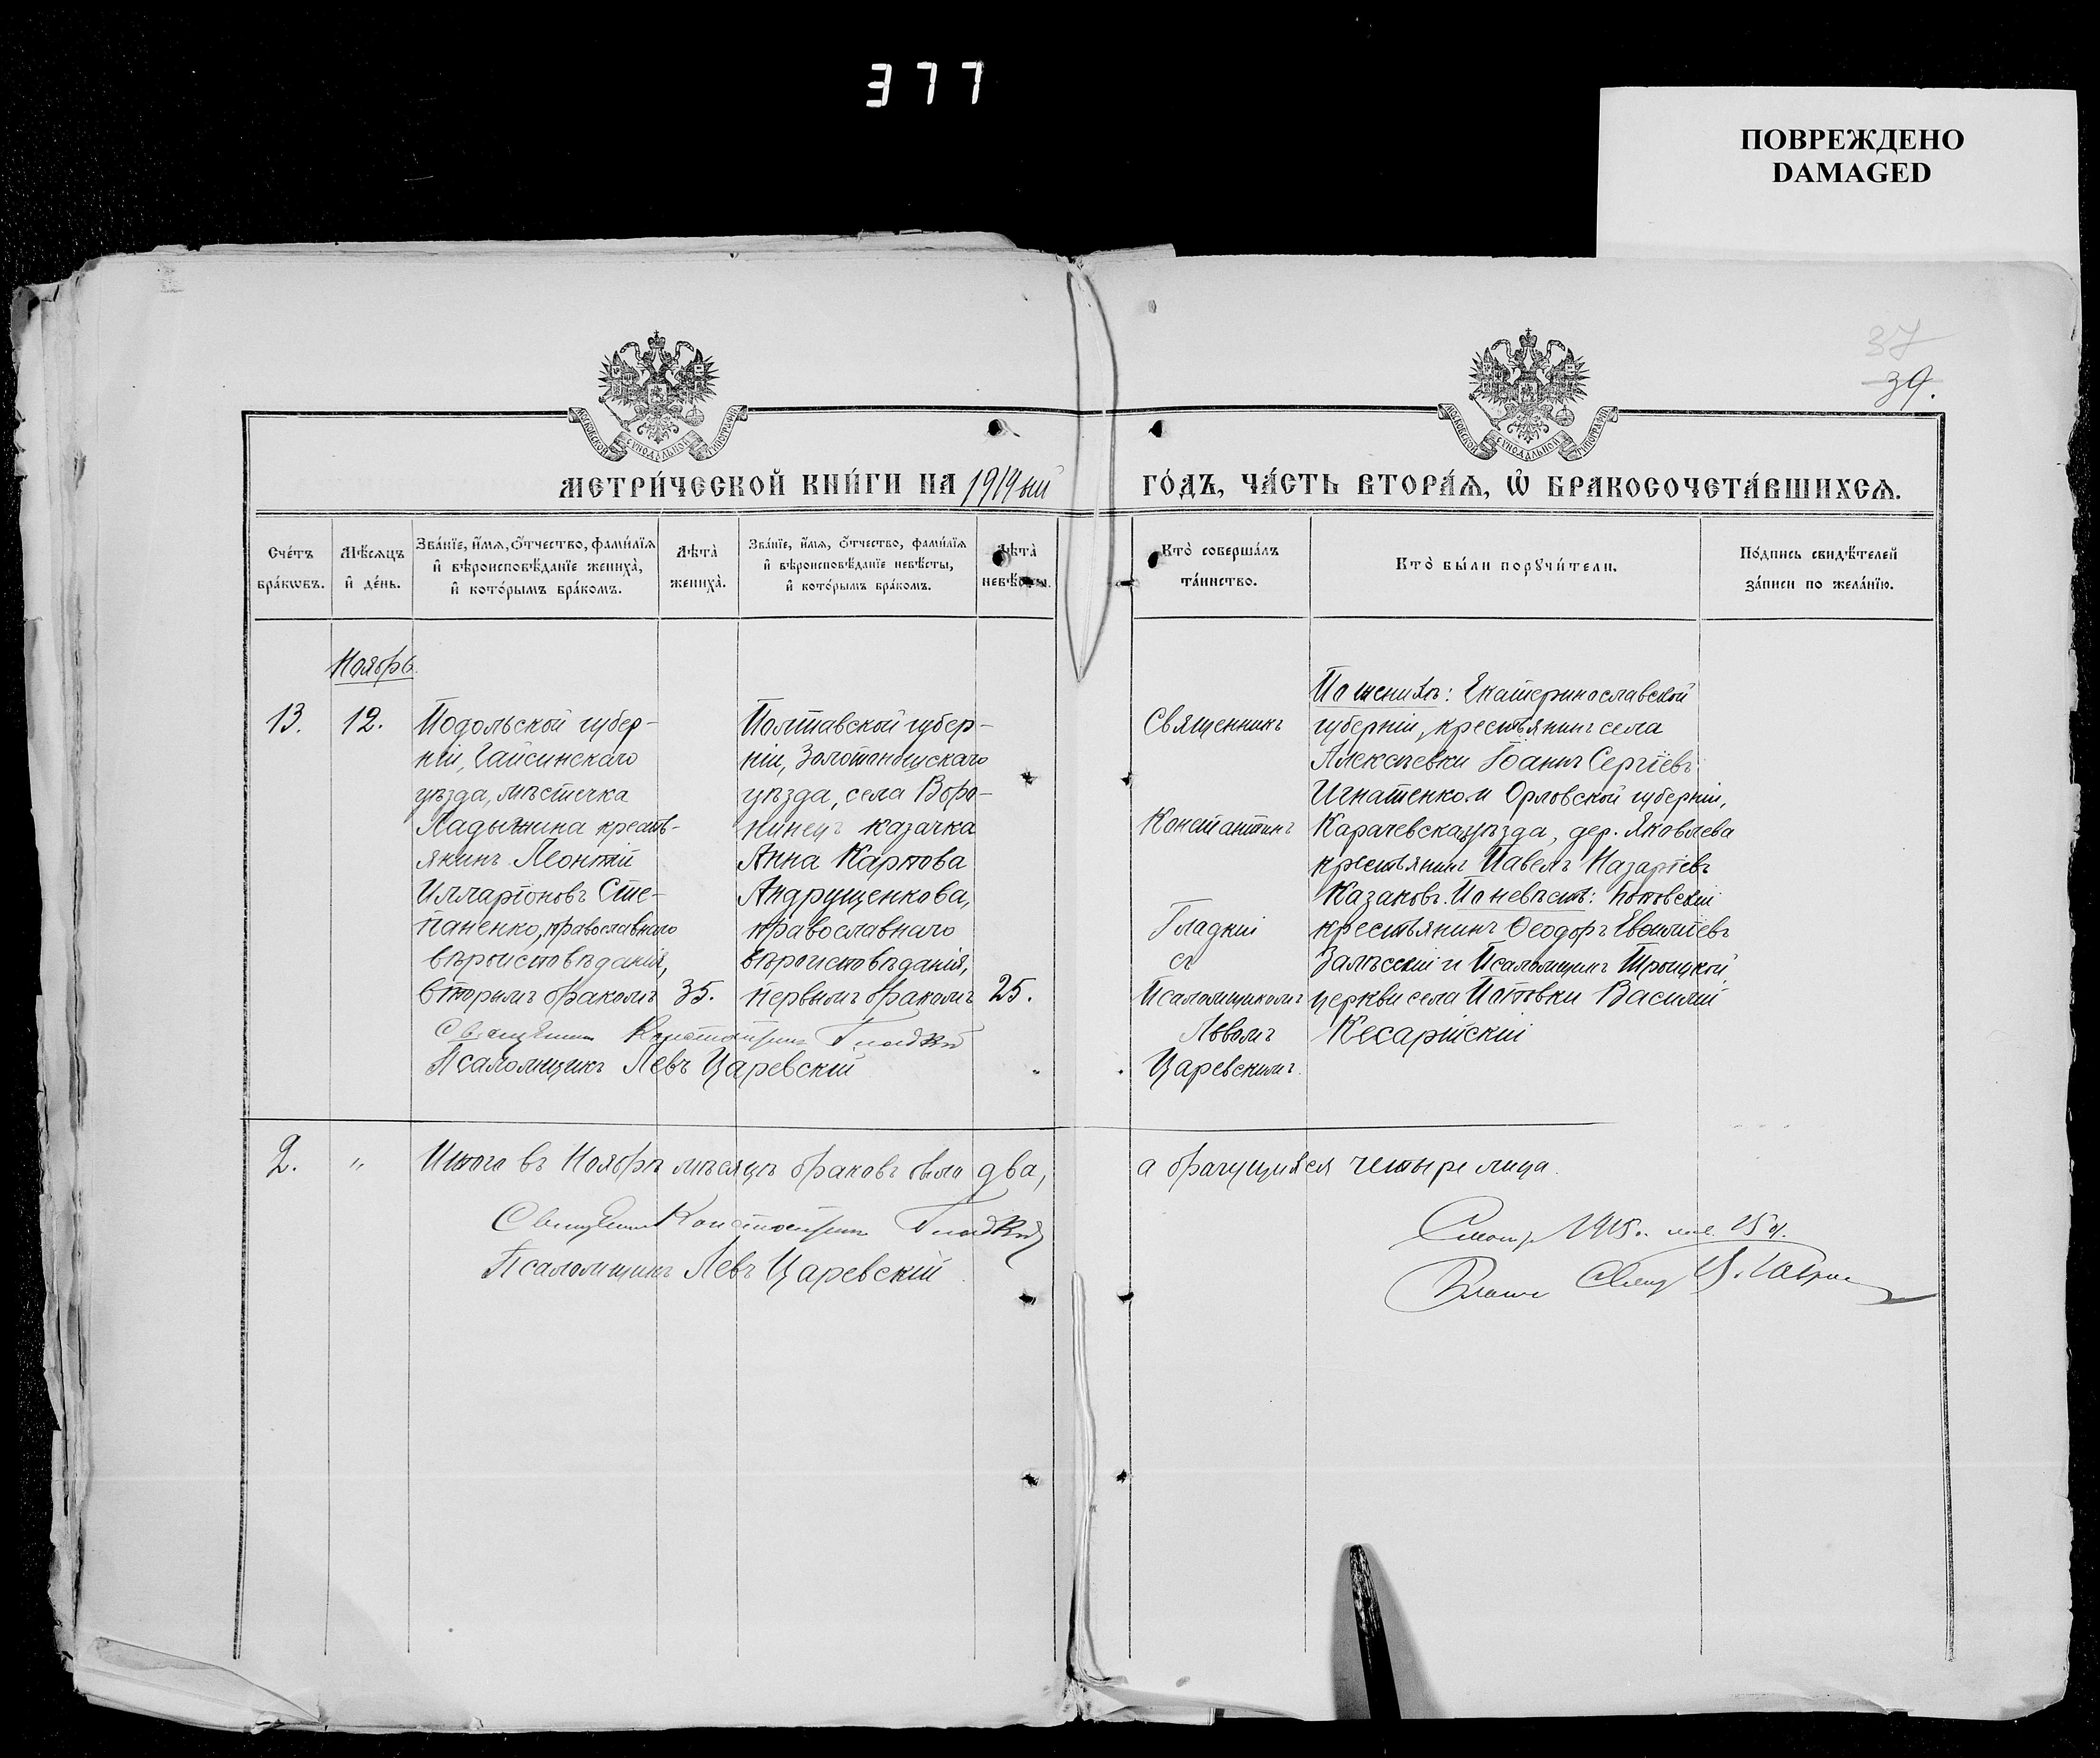 377
ПОВРЕЖДЕНО
DAMAGED
37
39.
МЕТРИ́ЧЕСКОЙ КНИ́ГИ НА 1914ый ГО́ДЪ, ЧА́СТЬ ВТОРА́Ѧ, Ѡ҆ БРАКОСОЧЕТА́ВШИХСѦ.
Сче́тъ бра́кѡвъ.
Мѣ́сѧцъ и҆ де́нь.
Зва́нїе, и҆́мѧ, ѻ҆́тчество, фами́лїѧ и҆ вѣроисповѣ́данїе жениха̀, и҆ кото́рымъ бра́комъ.
Лѣ́та̀ жениха̀.
Зва́нїе, и҆́мѧ, ѻ҆́тчество, фами́лїѧ и҆ вѣроисповѣ́данїе невѣ́сты, и҆ кото́рымъ бра́комъ.
Лѣ́та̀ невѣ́сты.
Кто̀ соверша́лъ та́инство.
Кто̀ бы́ли порꙋчи́тели.
По́дпись свидѣ́телей за́писи по жела́нїю.
Ноябрь.
13.
12.
Подольской губер-
ніи, Гайсинскаго
уѣзда, мѣстечка
Ладыжина кресть-
янинъ Леонтій
Илларіоновъ Сте-
паненко, православнаго
вѣроисповѣданія,
вторымъ бракомъ
35.
Полтавской губер-
ніи, Золотоношскаго
уѣзда, села Воро-
нинецъ казачка
Анна Карпова
Андрущенкова,
православнаго
вѣроисповѣданія,
первымъ бракомъ
25.
Священникъ Константинъ Гладкій
Псаломщикъ Левъ Царевскій
Священникъ
Константинъ
Гладкій
съ
Псаломщикомъ
Львомъ
Царевскимъ.
По женихѣ: Екатеринославской
губерніи, крестьянинъ села
Алексѣевки Іоаннъ Сергіевъ
Игнатенко и Орловской губерніи,
Карачевска уѣзда, дер. Яковлева
крестьянинъ Павелъ Назаріевъ
Казаковъ. По невѣстѣ:
крестьянинъ Ѳеодоръ Евѳиміевъ
Залѣсскій и Псаломщикъ Троицкой
церкви села Поповки Василій
Кесарійскій
2.
"
Итого въ Ноябрѣ мѣсяцѣ браковъ было два, а брачущихся четыре лица.
Священникъ Константинъ Гладкій
Псаломщикъ Левъ Царевскій
1915.